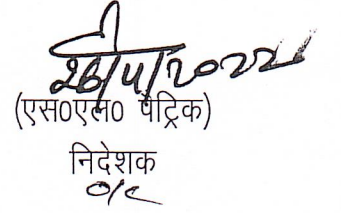 (एस०एल० पैट्रिक)
निदेशक
o/c